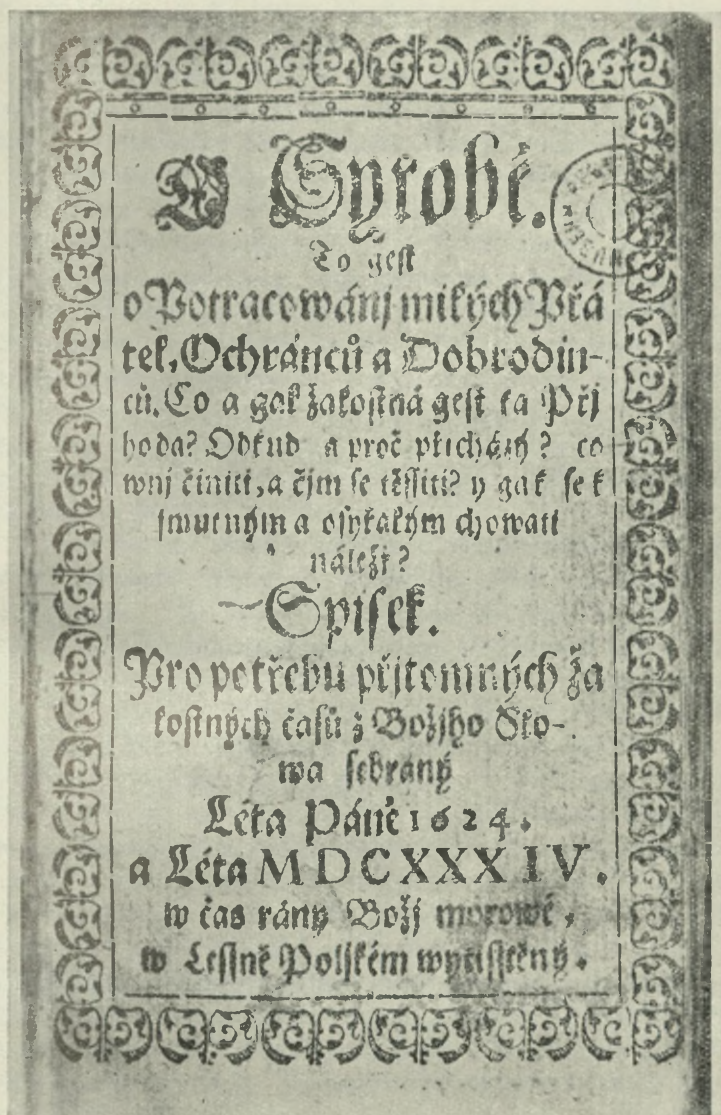 O Syrobě.
To gest
o Potracowánj milých Přá
tel, Ochránců a Dobrodin-
ců. Co a gak žalostná gest ta Přj
hoda? Odkud a proč přicházý? co
wnj činiti, a čjm se těssiti? y gak se k
smutným a osyřalým chowati
náležj?
Spisek.
Pro potřebu přjtomných ža
lostných časů z Božjho Slo-
wa sebraný
Léta Páně 1624.
a Léta MDCXXXIV.
w čas rány Božj morowé,
w Lessně Polském wytisstěný.
MUSEUM